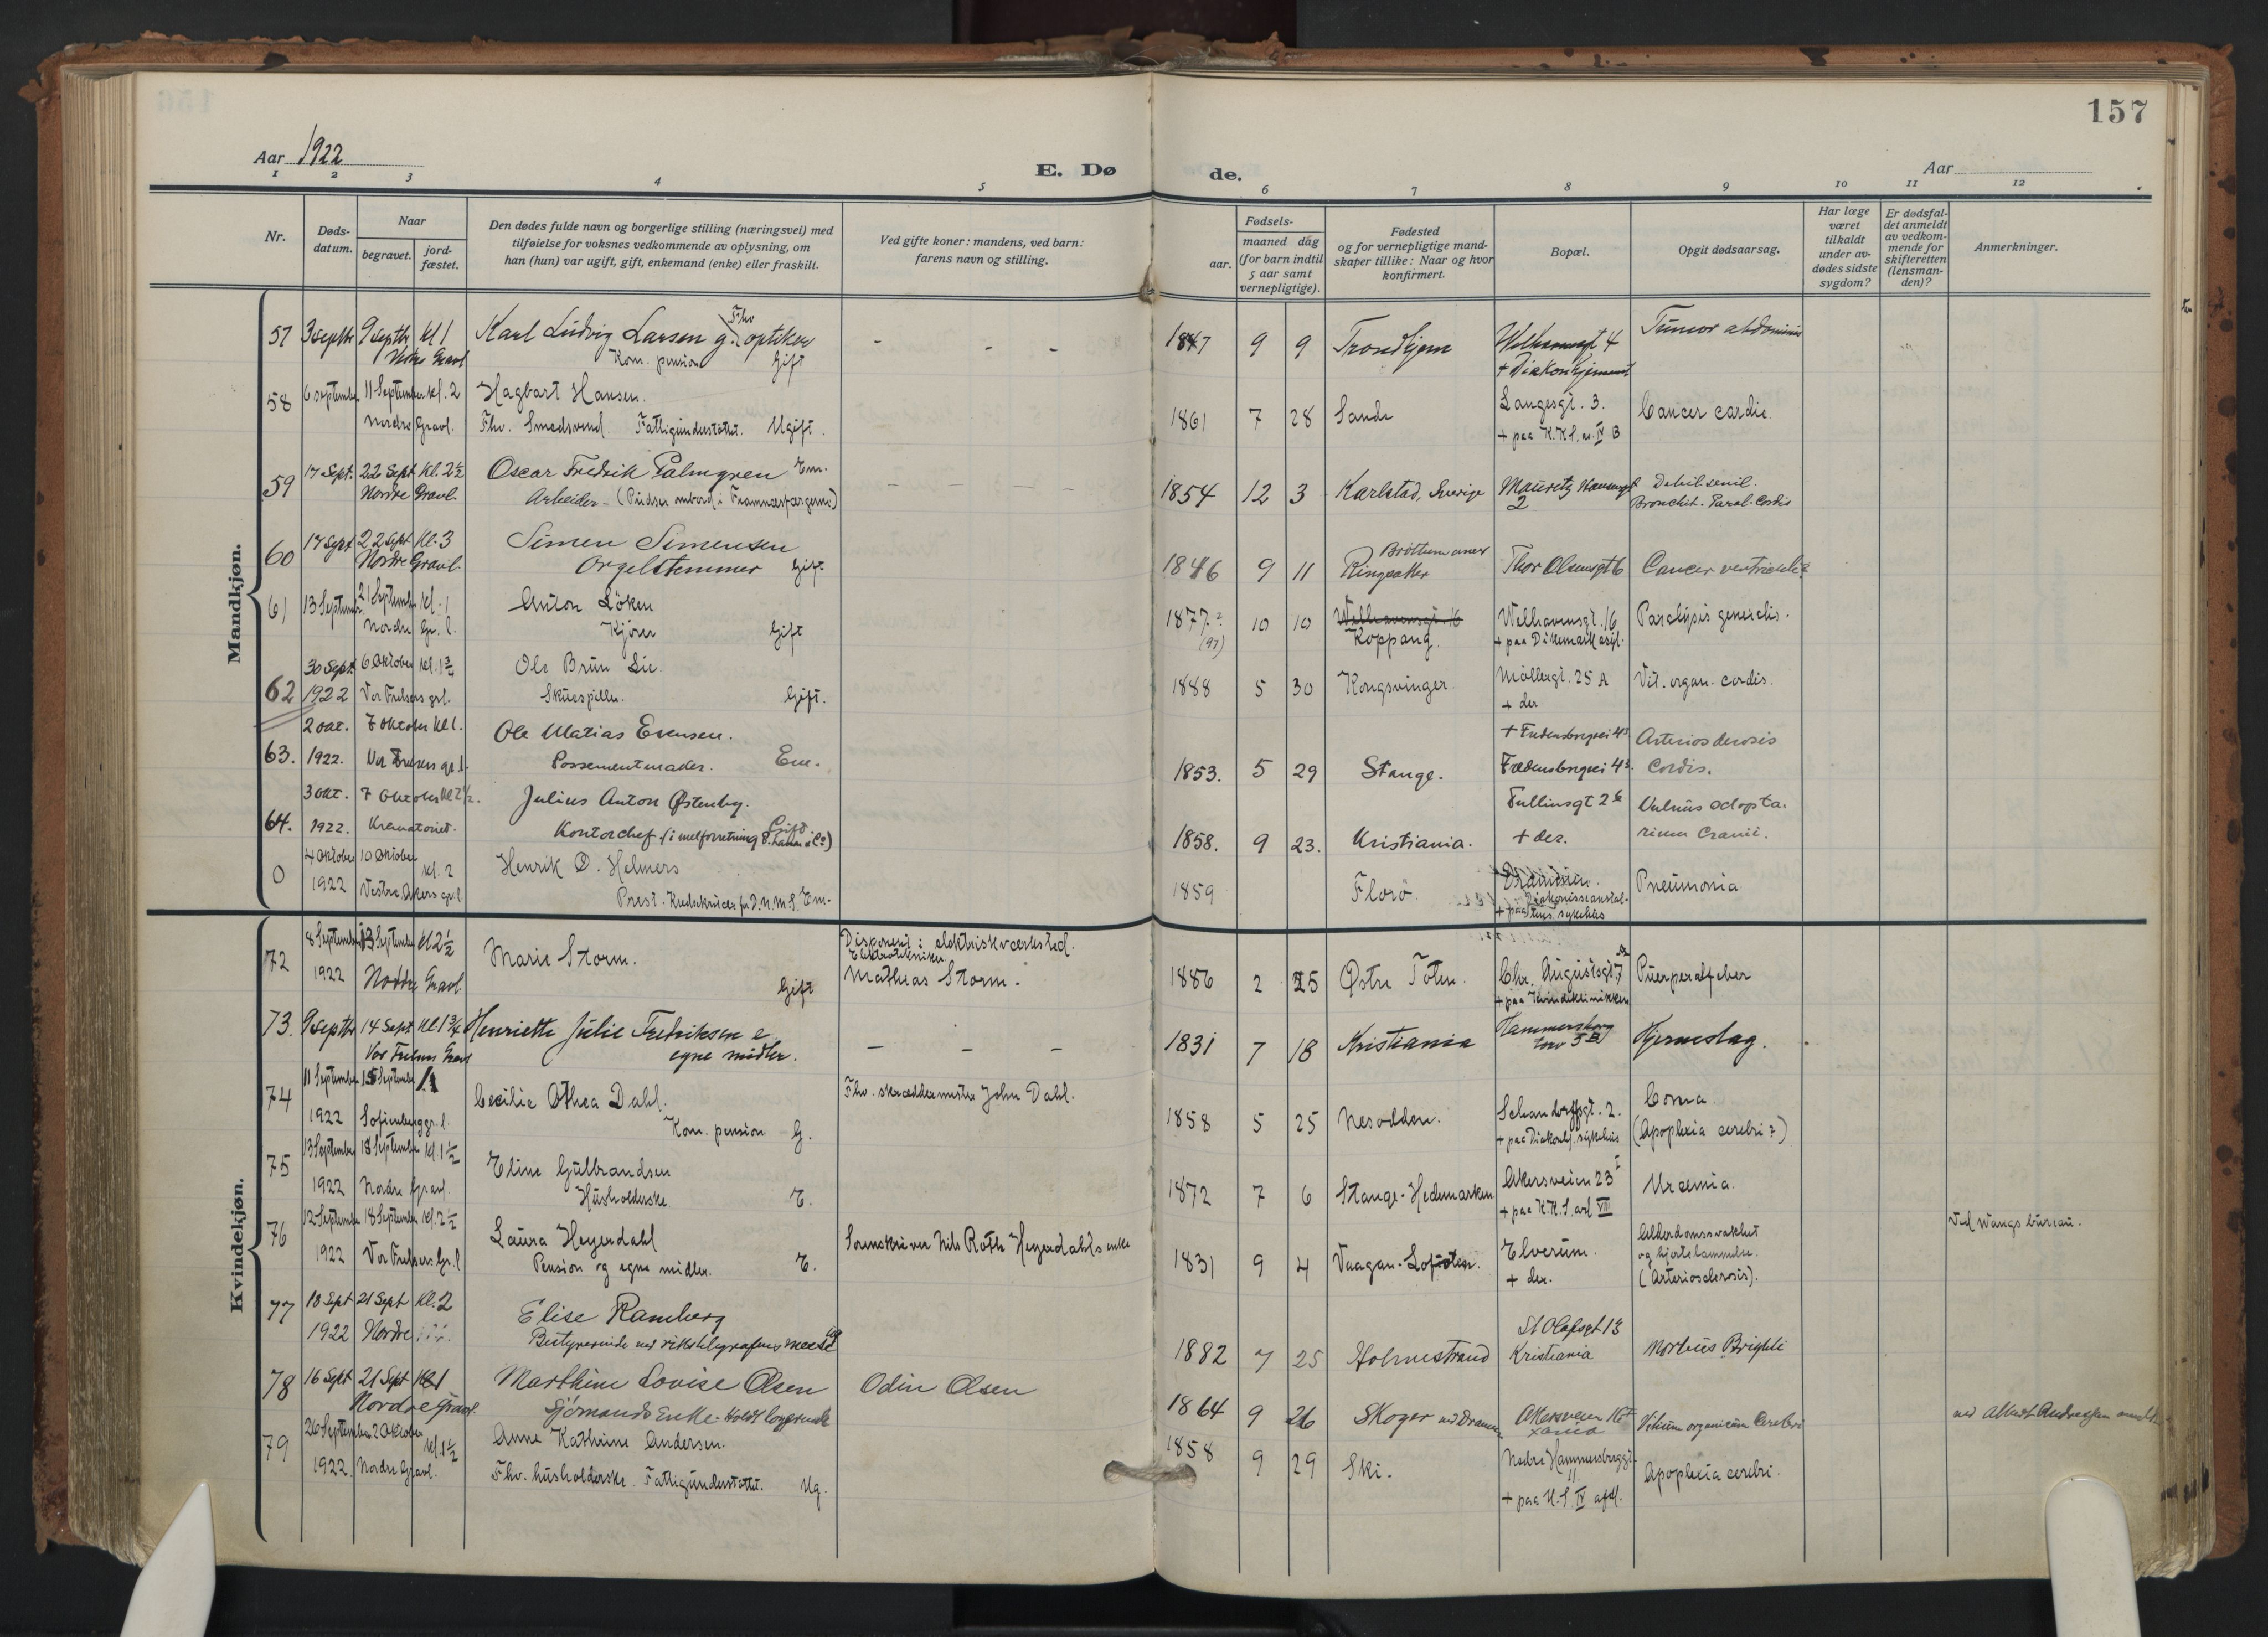 157
Aar 1922
E. Dø
de.
Aar
1 2 3 4 5 6 7 8 9 10 11 12
Nr.
Døds-
datum.
Naar
begravet.
jord-
fæstet.
Den dødes fulde navn og borgerlige stilling (næringsvei) med
tilføielse for voksnes vedkommende av oplysning, om
han (hun) var ugift, gift, enkemand (enke) eller fraskilt.
Ved gifte koner: mandens, ved barn:
farens navn og stilling.
Fødsels-
aar.
maaned dag
(for barn indtil
5 aar samt
vernepligtige).
Fødested
og for vernepligtige mand-
skaper tillike: Naar og hvor
konfirmert.
Bopæl.
Opgit dødsaarsag.
Har læge
været
tilkaldt
under av-
dødes sidste
sygdom?
Er dødsfal-
det anmeldt
av vedkom-
mende for
skifteretten
(lensman-
den)?
Anmerkninger.
Mandkjøn.
57 3 septbr 9 septbr kl 1 Karl Ludvig Larsen g. Fhv optiker - - - 1847 9 9 Trondhjem 4 Tumor abdominis
Nordre Gravl Kom. pension Gift + Diakonhjemmet
58 6 september 11 September kl. 2 Hagbart Hansen. 1861 7 28 Sande Langesgt. 3. Cancer cardie.
Nordre Gravl. Fhv. Smedsvend. Fattigunderstøttet. Ugift. + paa K.K.S. av. IV B
59 17 Sept. 22 Sept Kl. 2½ Oscar Fredrik Palmgren Em. 1854 12 3 Karlstad, Sverige Mauritz Hansensgt 2 Debil. senil.
Nordre Gravl. Arbeider - (Pudser ombord i ) Bronchit. Paral. Cordis
60 17 Sept 22 Sept Kl. 3 Simen Simensen 1846 9 11 Brøttum anex Ringsaker Thor Olsensgt 6 Cancer ventriculi
Nordre Gravl Orgelstemmer Gift
61 13 September 21 September kl. 1 Anton Løken 1877? 10 10 Welhavensgt. 16 Welhavensgt. 16 Paralysis generalis.
Nordre Gr. l. Kjører Gift Koppang. + paa Dikemark asyl.
62 30 Sept. 1922 6 Oktober kl. 1¾ Ole Brun Lie. 1888 5 30 Kongsvinger. Møllergt. 25 A Vit. organ. cordis.
Vor Frelsers grl. Skuespiller. Gift. + der
63. 2 okt. 1922. 7 Oktober Kl 1. Ole Matias Evensen. 1853. 5 29 Stange. + Fredensborgvei 43 Arteriosclerosis
Vor Frelsers gr. l. Possementmaker. Em. Fredensborgvei 43. Cordis.
64. 3 okt. 1922. 7 Oktober kl 2½. Julius Anton Østenby. 1858. 9 23. Kristiania. Tullinsgt 2 Vulnus sclopta.
Krematoriet. Kontorchef (i melforretning) Gift. + der. rium Cranii.
0 4 Oktober 1922 10 Oktober kl. 2 Henrik O. Helmers 1859 Florø. Pneumonia
Vestre Akers grl. Prest. Kredssekretær for D.N.M.S. Em. + paa Diakonisseanstal-
tens sykehus
Kvindekjøn.
72 8 September 1922 13 September kl 2½ Marie Storm. Disponent i elektrisk verksted. 1886 2 25 Østre Toten. Chr. Augustsgt 7 Puerperalfeber
Nordre Gravl Gift Elektrotekniker Mathias Storm. + paa Kvindeklinikken
73. 9 septbr 14 Sept Kl. 1¾ Henriette Julie Fredriksen e - - - 1831 7 18 Kristiania Hammersborg torv 3 B Hjerneslag.
Vor Frelsers Gravl egne midler.
74 11 September 1922 15 September 1 Cecilie Othea Dahl. Fhv. skreddermester John Dahl. 1858 5 25 Nesodden. Schandorffsgt. 2. Coma
Sofienberg gr. l. Kom. pension G. + paa Diakonhj. sykehus (Apoplexia cerebri?)
75 13 September 1922 18 September kl 1½ Eline Gulbrandsen 1872 7 6 Stange. Hedemarken Akersveien 23 I Uræmia.
Nordre Gravl. Husholderske. E. + paa K.K.S. avd VIII
76 12 September 1922 18 September kl. 2½ Laura Heyerdahl Sorenskriver Nils Roth Heyerdahls enke 1831 9 4 Vaagan. Lofoten. Elverum. Alderdomssvakhet Ved Wangs bureau.
Vor Frelsers Gr. l Pension og egne midler. E. + der. og hjertelammelse. (Arteriosclerosis).
77 18 Sept 1922 21 Sept Kl. 2 Elise Ramberg 1882 7 25 Holmestrand St Olafsgt 13 Kristiania Morbus Brighti
Nordre Bestyrerinde ved rikstelegrafens messe ug
78 16 Sept 21 Sept Kl 1 Marthine Lovise Olsen Odin Olsen 1864 9 26 Skoger ved Drammen Akersveien 16 Vitium organicum Cerebri
Nordre Gravl. Sjømands Enke. Holdt logerende
79 26 September 1922. 2 Oktober kl. 1½ Anne Kathrine Andersen. 1858 9 29 Ski. Nedre Hammersborggt. 11 Apoplexia cerebri.
Nordre Gravl. Fhv. husholderske. Fattigunderstøttet. Ug. + paa U.S. IV afd.